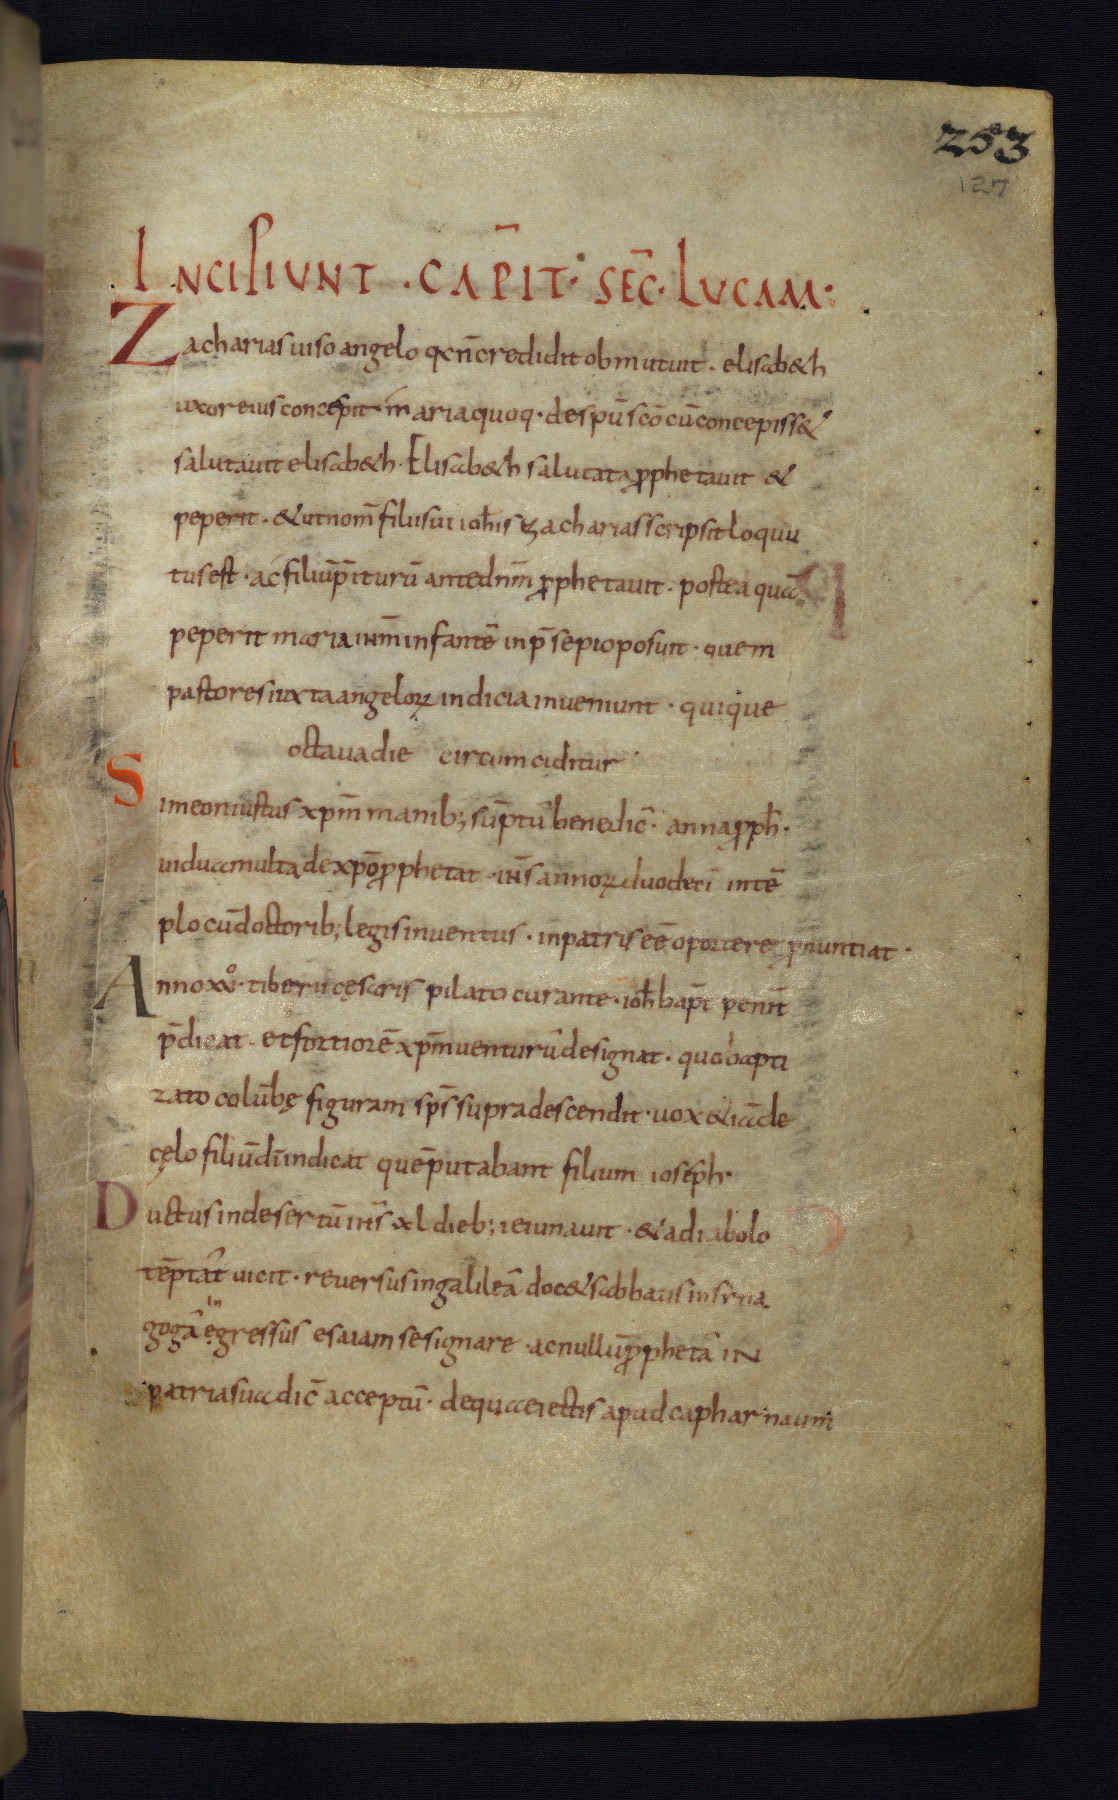 253
127
INCIPIUNT · CAP̄IT · SEC̄ · LUCAM ·
Zacharias uiso angelo qͨ n̄ credidit obmutuit · elisabeth
uxor eius concepit · maria quoq· de sp̄u sc̄o cū concepiss&
salutauit elisab&h · Elisab&h salutata ꝓphetauit &
peperit · & ut nom̄ filii sui ioh̄is zacharias scripsit loquu
tus est · ac filiū p̄iturū ante dn̄m ꝓphetauit · postea quā
peperit maria ih̄m infantē in p̄sepio posuit · quem
pastores iuxta angeloꝝ indicia inueniunt · quique
octaua die circumciditur
Simeon iustus xp̄m manib; sūptū benedic̄ · anna ꝓph̄ ·
uidua multa de xp̄o ꝓphetat · ih̄s annoꝝ duodeci in tē
plo cū doctorib; legis inuentus · in patris eē oportere ꝓnuntiat ·
Anno xv° · tiberii cęsaris pilato curante · ioh̄ bap̄t penit̄
p̄dicat · et fortiorē xp̄m uenturū designat · quo bapti
zato colūbę figuram sp̄s supra descendit · uox &iā de
cęlo filiū dī indicat quē putabant filium ioseph ·
Ductus in desertū ih̄s xl dieb; ieiunauit · & a diabolo
tēptat̄ uicit · reuersus in galileā doc& sabbatis in sina
gogā in
ęgressus esaiam se signare · ac nullū ꝓphetā IN
patria sua dic̄ acceptū · de qua eiectis apud capharnaum